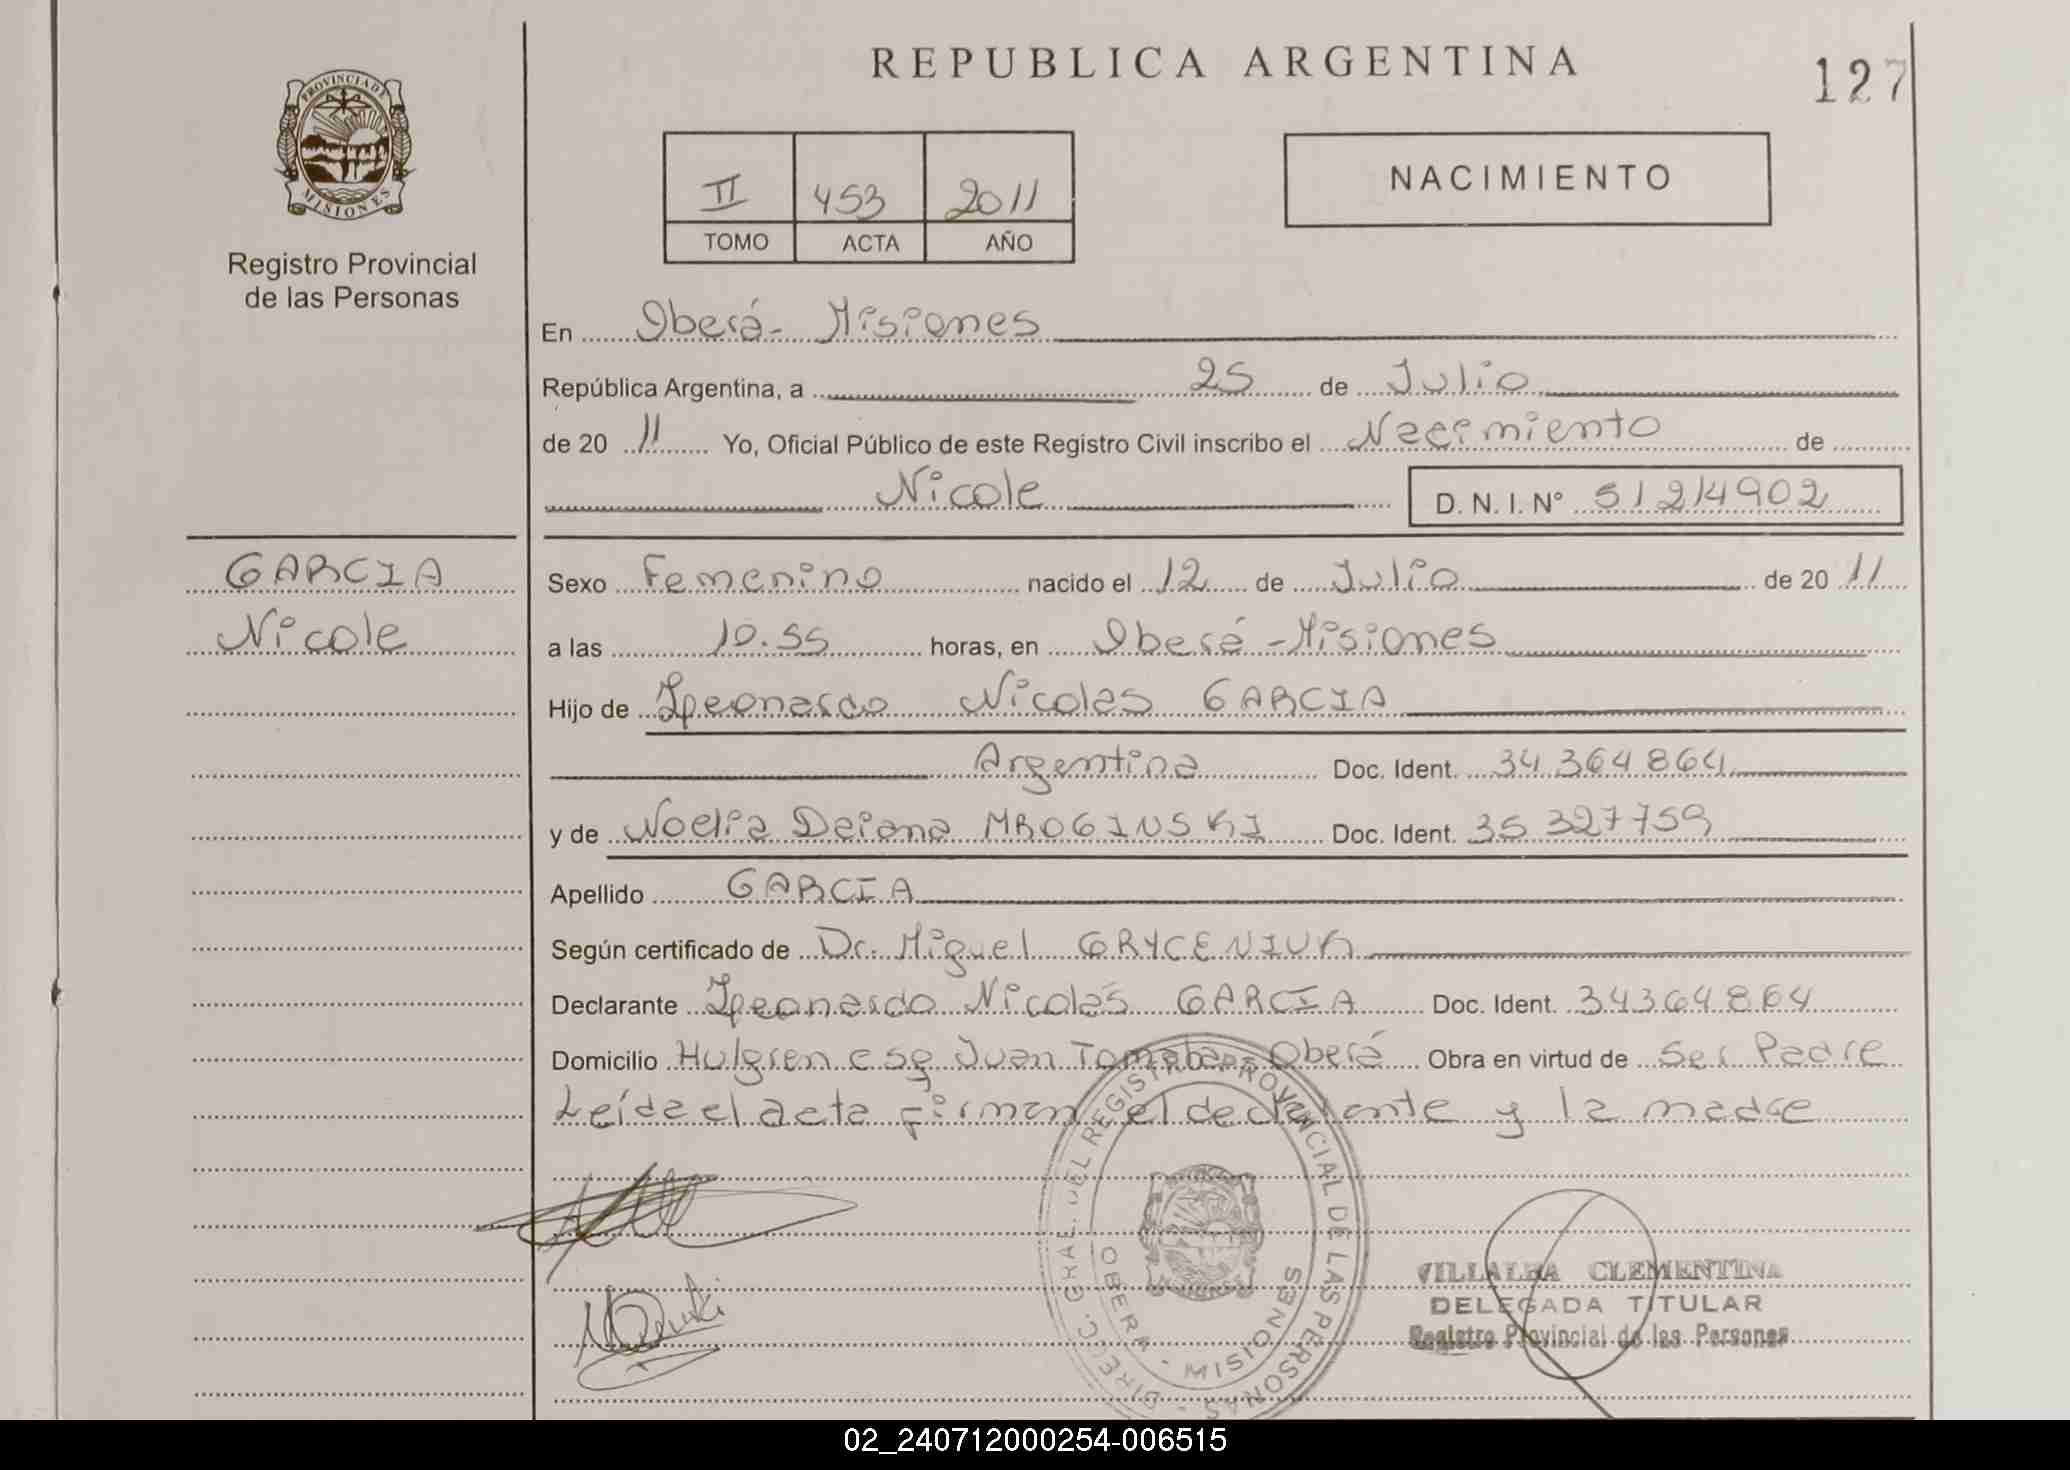 REPUBLICA ARGENTINA
127
PROVINCIA DE
MISIONES
Registro Provincial
de las Personas
II 453 2011
TOMO ACTA AÑO
NACIMIENTO
En Oberá - Misiones
República Argentina, a 25 de Julio
de 20 11 Yo, Oficial Público de este Registro Civil inscribo el Nacimiento de
Nicole D. N. I. Nº 51214902
GARCIA
Nicole
Sexo Femenino nacido el 12 de Julio de 20 11
a las 10.55 horas, en Oberá - Misiones
Hijo de Leonardo Nicolas GARCIA
Argentina Doc. Ident. 34 364 864
y de Noelia Daiana MROGINSKI Doc. Ident. 35 327759
Apellido GARCIA
Según certificado de Dr. Miguel GRYCENIUK
Declarante Leonardo Nicolás GARCIA Doc. Ident. 34364864
Domicilio Hulgren esq Juan Oberá Obra en virtud de Ser Padre
Leída el acta firman el declarante y la madre
DIRECC. GRAL. DEL REGISTRO PROVINCIAL DE LAS PERSONAS
OBERA - MISIONES
VILLALBA CLEMENTINA
DELEGADA TITULAR
Registro Provincial de las Personas
02_240712000254-006515